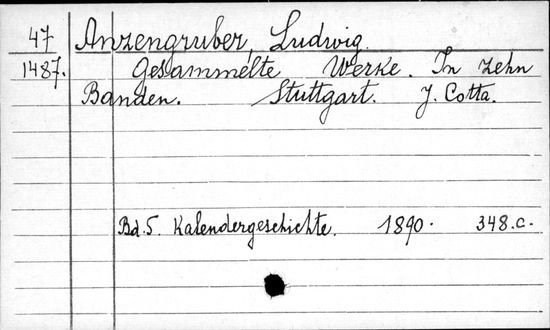 47 Anzengruber, Ludwig.
1487. Gesammelte Werke. In zehn
Banden. Stuttgart. J. Cotta.
Bd. 5. Kalendergeschichte. 1890. 348.c.